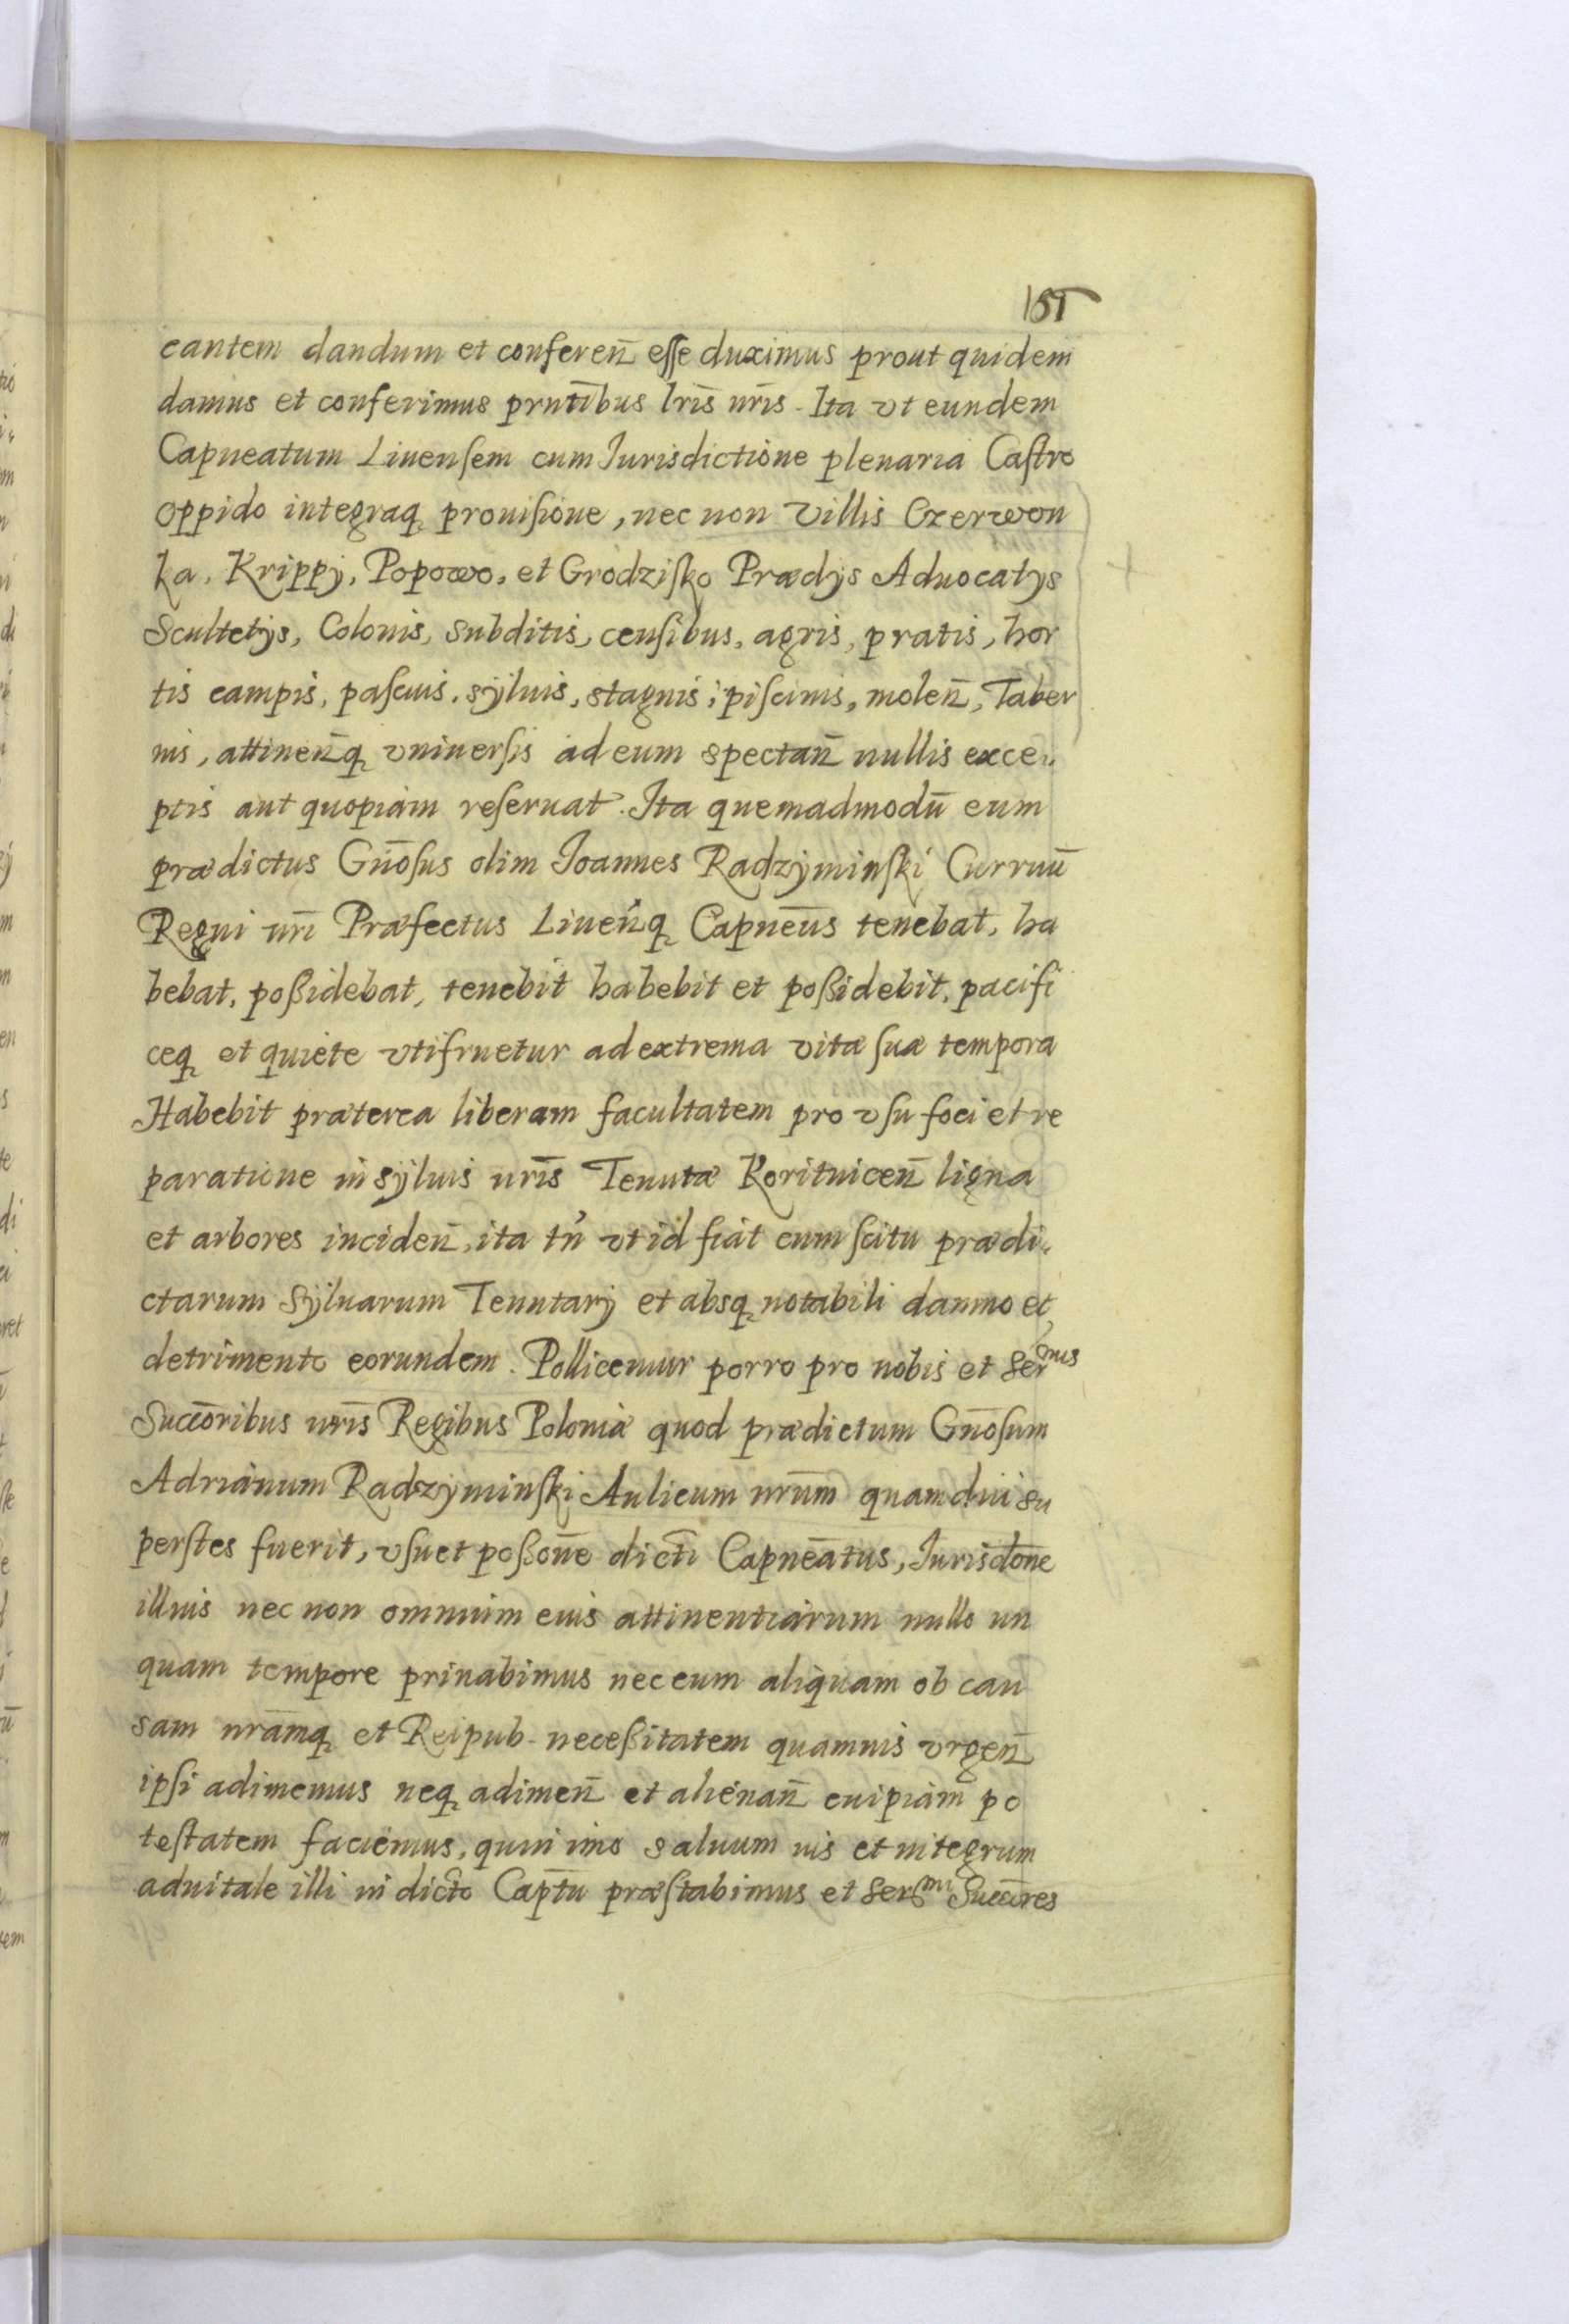 151
cantem dandum et conferen̄ esse duximus prout quidem
damus et conferimus prntībus lrīs nrīs. Ita vt eundem
Capneatum Liuensem cum Iurisdictione plenaria Castro
oppido integraq prouisione, nec non villis Czerwon
ka, Krippÿ, Popowo, et Grodzisko Prædÿs Aduocatÿs
Scultetÿs, Colonis, subditis, censibus, agris, pratis, hor
tis campis, pascuis, sÿluis, stagnis, piscinis, molen̄, Taber
nis, attinen̄q vniuersis ad eum spectan̄ nullis exce,,
ptis aut quopiam reseruat. Ita quemadmodū eum
prædictus Gn̄osus olim Joannes Radzÿminski Curruū
Regni nrī Præfectus Liuen̄q Capneūs tenebat, ha
bebat, poßidebat, tenebit habebit et poßidebit, pacifi
ceq et quiete vtifruetur ad extrema vitæ suæ tempora
Habebit præterea liberam facultatem pro vsu foci et re
paratione in sÿluis nrīs Tenutæ Koritnicen̄ ligna
et arbores inciden̄, ita tn̄ vt id fiat cum scitu prædi,,
ctarum Sÿluarum Tenutarÿ et absq notabili damno et
detrimento eorundem. Pollicemur porro pro nobis et Ser^mis
Succōribus nrīs Regibus Poloniæ quod prædictum Gn̄osum
Adrianum Radzÿminski Aulicum nrūm quamdiu su
perstes fuerit, vsu et poßōne dictī Capneātus, Jurisdōne
illius nec non omnium eius attinentiarum nullo un
quam tempore priuabimus nec eum aliquam ob cau
sam nrāmq et Reipub. neceßitatem quamuis vrgen̄
ipsi adimemus neq adimen̄ et alienan̄ cuipiam po
testatem faciemus, quin imo saluum ius et integrum
aduitale illi in dictō Captū præstabimus et Ser^mi Succōres